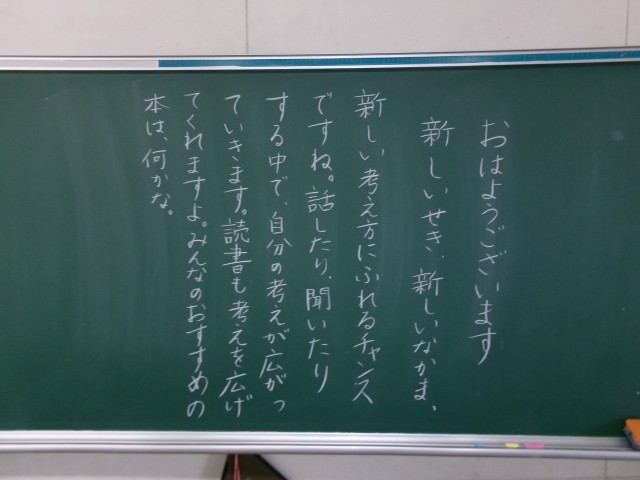 おはようございます
新しいせき、新しいなかま、
新しい考え方にふれるチャンス
ですね。話したり、聞いたり
する中で、自分の考えが広がっ
ていきます。読書も考えを広げ
てくれますよ。みんなのおすすめの
本は、何かな。